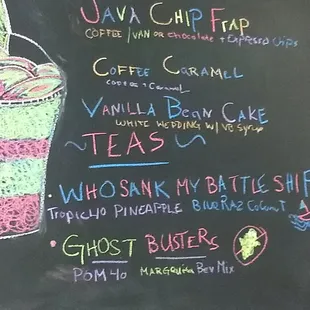 JAVA CHIP FRAP
COFFEE / VAN OR chocolate + Espresso chips
COFFEE CARAMEL
coffee + caramel
VANILLA BEAN CAKE
WHITE WEDDING W/ VB Syrup
~TEAS~
• WHO SANK MY BATTLE SHIP
Tropiclio PINEAPPLE BlueRaz Coconut
• GHOST BUSTERS
POM 40 MARGARITA Bev Mix